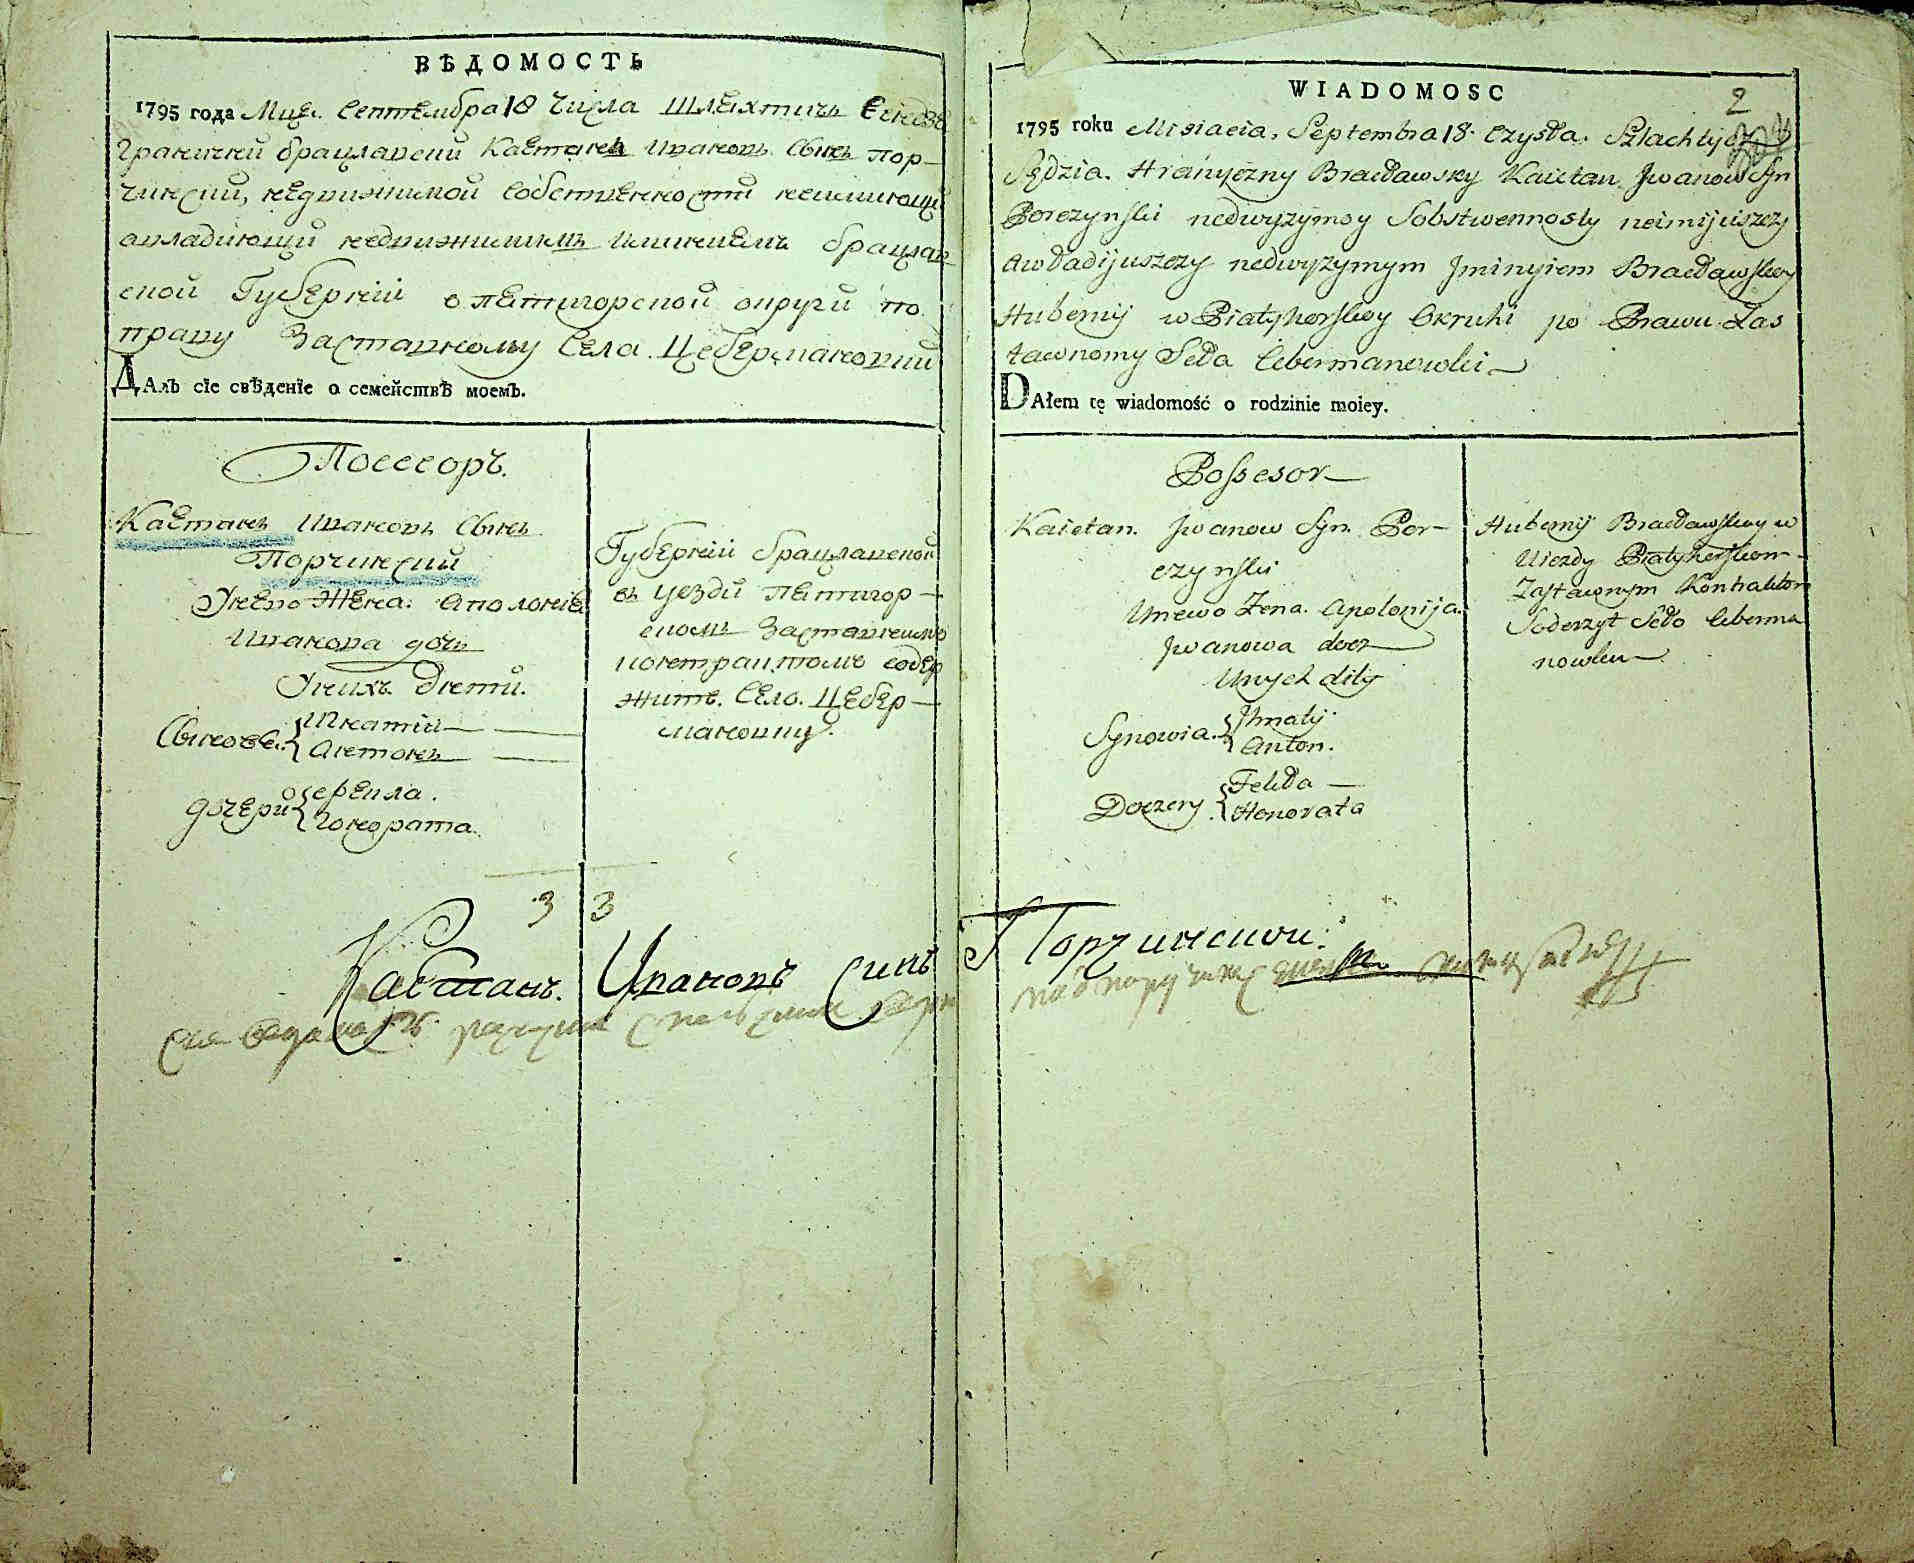 ВѢДОМОСТЬ
1795 года Мце. Септембра 18 числа Шлехтичъ
Граничний Брацлавский Каетанъ Ивановъ Сынъ Пор-
чинский, недвижимой Собственности неимиющи
авладиющи недвижимимъ Иминиемъ Брацлав
ской Губернии в Пятигорской округи по
праву Заставному Села Цеберманов
Далъ сіе свѣденіе о семействѣ моемъ.
Поссесоръ.
Каетанъ Ивановъ Сынъ
Порчинский
Унево Жена. Аполония
Иванова дочь
Унихъ Дети.
Сынове. Игнатий
Антонъ
Дочери
Гонората.
Губернии Брацлавской
въ уезди Пятигор-
скомъ Заставнимъ
контрактомъ содер
житъ. Село. Цебер-
мановку.
3 3
Каетанъ. Ивановъ Синъ Порчинской.
WIADOMOSC
2
1795 roku Misiacia, Septembra 18. Czysła. Szlachtycz
Sędzia. Hranyczny Bracławsky Kaietan Jwanow Syn
Porczynski nedwyzymoy Sobstwennosty neimijuszczy
awładijuszczy nedwyzymym Jminyiem Bracławskoy
Hubernij w Piatyhorskoy Okruhi po Prawu Zas
tawnomy Seła Cebermanowki
DAłem tę wiadomość o rodzinie moiey.
Possesor
Kaietan. Jwanow Syn. Por-
czynski
Unewo Zena. Apolonija.
Jwanowa docz
Unych dity
Synowia. Jhnaty
Anton.
Doczery. Felicła
Honorata
Hubernij Bracławskoy w
Uiezdy Piatyhorskom
Zastawnym Kontraktom
Soderzyt SełoCeberma
nowku